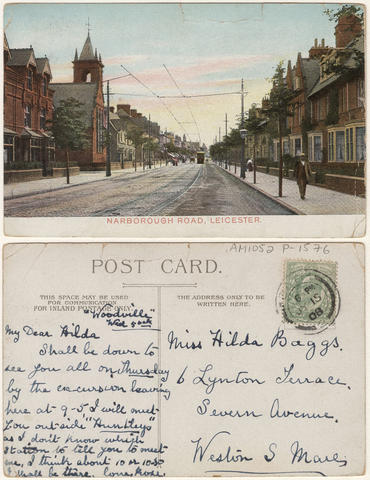 NARBOROUGH ROAD, LEICESTER.
AM1052 P-1576
POST CARD.
THIS SPACE MAY BE USED
FOR COMMUNICATION
FOR INLAND POSTAGE ONLY.
THE ADDRESS ONLY TO BE
WRITTEN HERE.
"Woodville"
Wed
My Dear Hilda
Shall be down to
see you all on Thursday
by the excursion leaving
here at 9-5, I will meet
you outside "Huntleys
as I don't know which
station to tell you to meet
me, I think about 10 or
I shall be there. Love,
Miss Hilda Baggs.
6 Lynton Terrace.
Severn Avenue.
Weston S Mare.
PM
15
08